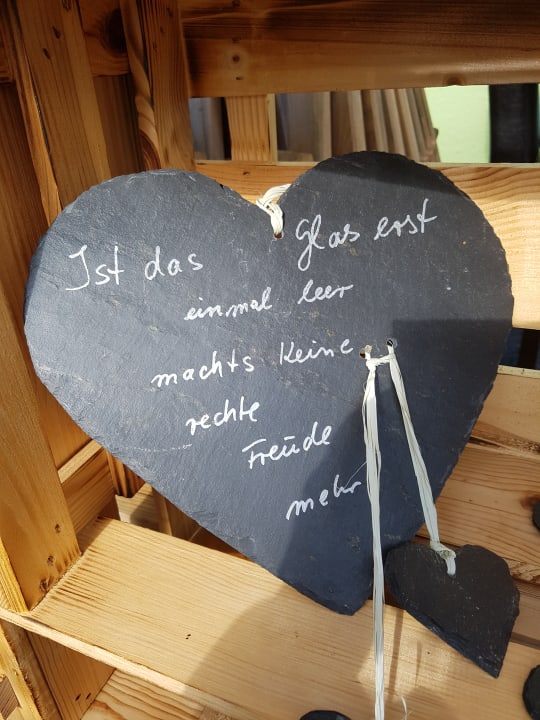 Ist das Glas erst
einmal leer
machts Keine
rechte
Freude
mehr